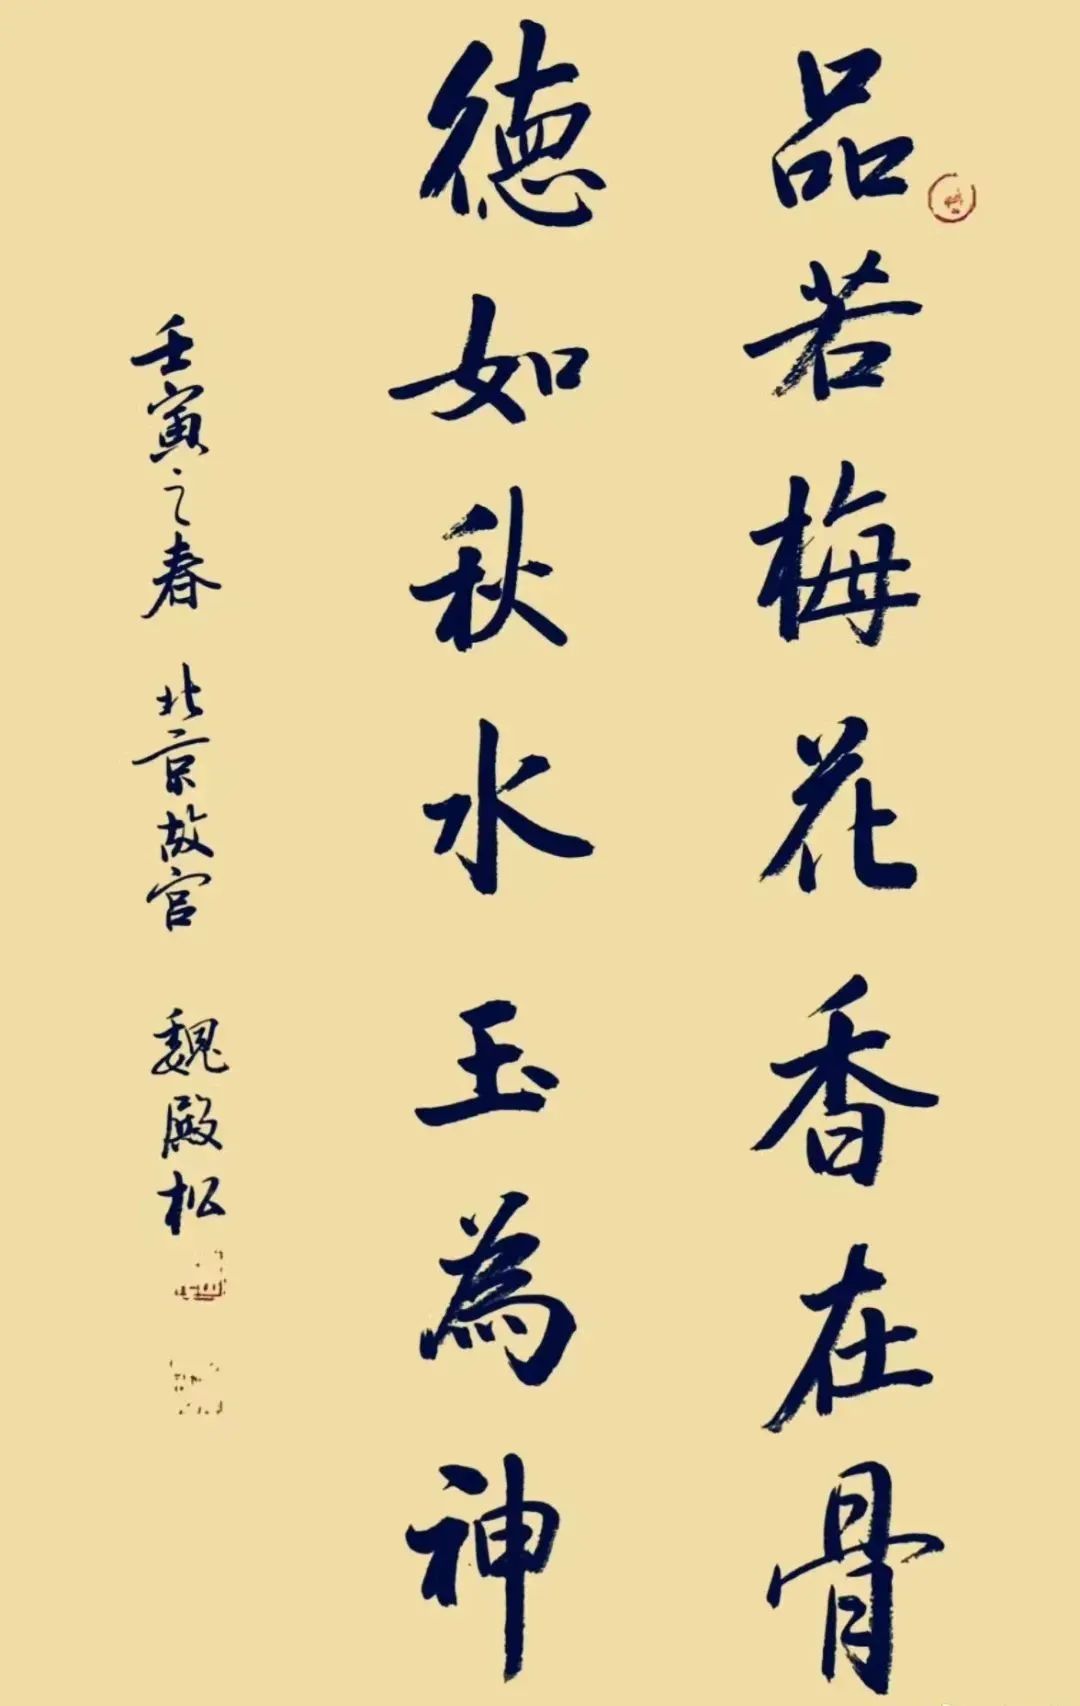 品若梅花香在骨
德如秋水玉為神
壬寅之春 北京故宫 魏殿松